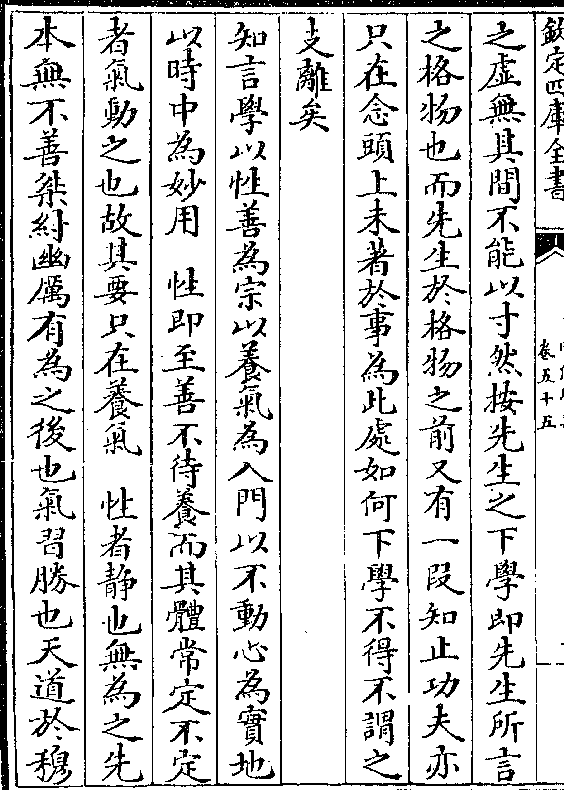 欽定四庫全書
卷五十五
之虛無其間不能以寸然按先生之下學即先生所言
之格物也而先生於格物之前又有一段知止功夫亦
只在念頭上未著於事為此處如何下學不得不謂之
支離矣
知言學以性善為宗以養氣為入門以不動心為實地
以時中為妙用　性即至善不待養而其體常定不定
者氣動之也故其要只在養氣　性者靜也無為之先
本無不善桀紂幽厲有為之後也氣習勝也天道於穆